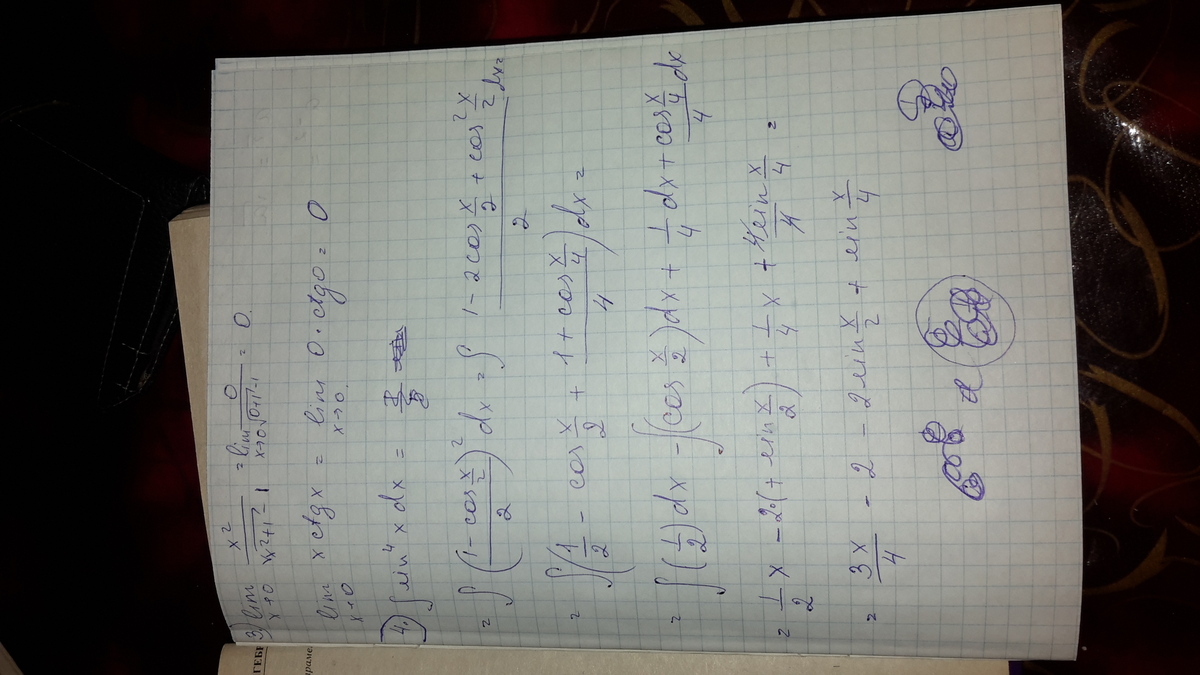 3) lim x→0 x² / √x²+1 - 1 = lim x→0 0 / √0+1 - 1 = 0
lim x→0 x ctgx = lim x→0 0 · ctg0 = 0
4. ∫ sin⁴ x dx =
= ∫ ( 1 - cos x/2 / 2 )² dx = ∫ 1 - 2 cos x/2 + cos² x/2 / 2 dx =
= ∫ ( 1/2 - cos x/2 + 1 + cos x/4 / 4 ) dx =
= ∫ ( 1/2 ) dx - ∫ ( cos x/2 ) dx + 1/4 dx + cos x/4 / 4 dx
= 1/2 x - 2·( + sin x/2 ) + 1/4 x + 4 sin x/4 / 4 =
= 3x/4 - 2 - 2 sin x/2 + sin x/4
ГЕБР